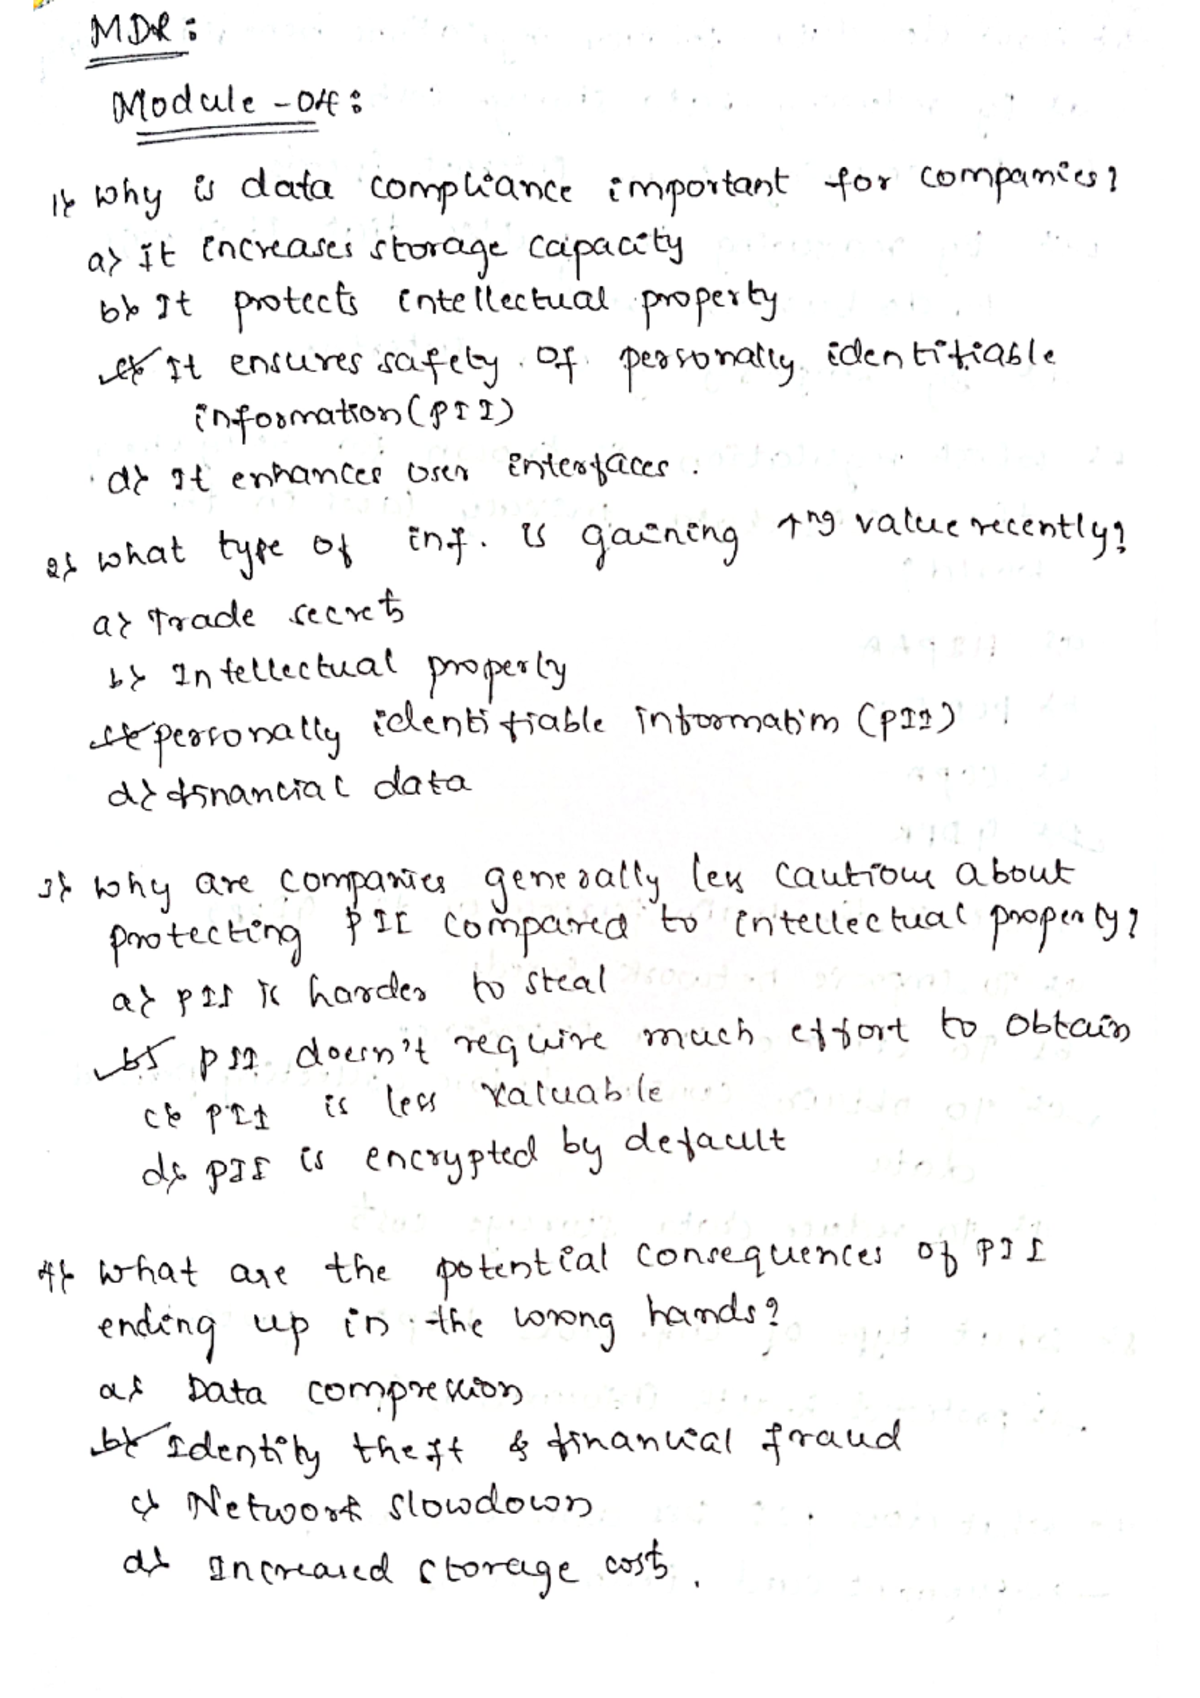 MDR:
Module-04:
1) Why is data compliance important for companies?
a) It increases storage capacity
b) It protects intellectual property
c) It ensures safety of personally identifiable
information (PII)
d) It enhances user interfaces.
2) What type of inf. is gaining ↑ng value recently?
a) Trade secrets
b) Intellectual property
c) personally identifiable information (PII)
d) financial data
3) Why are companies generally less cautious about
protecting PII compared to intellectual property?
a) PII is harder to steal
b) PII doesn't require much effort to obtain
c) PII is less valuable
d) PII is encrypted by default
4) What are the potential consequences of PII
ending up in the wrong hands?
a) Data compression
b) Identity theft & financial fraud
c) Network slowdown
d) Increased storage costs.